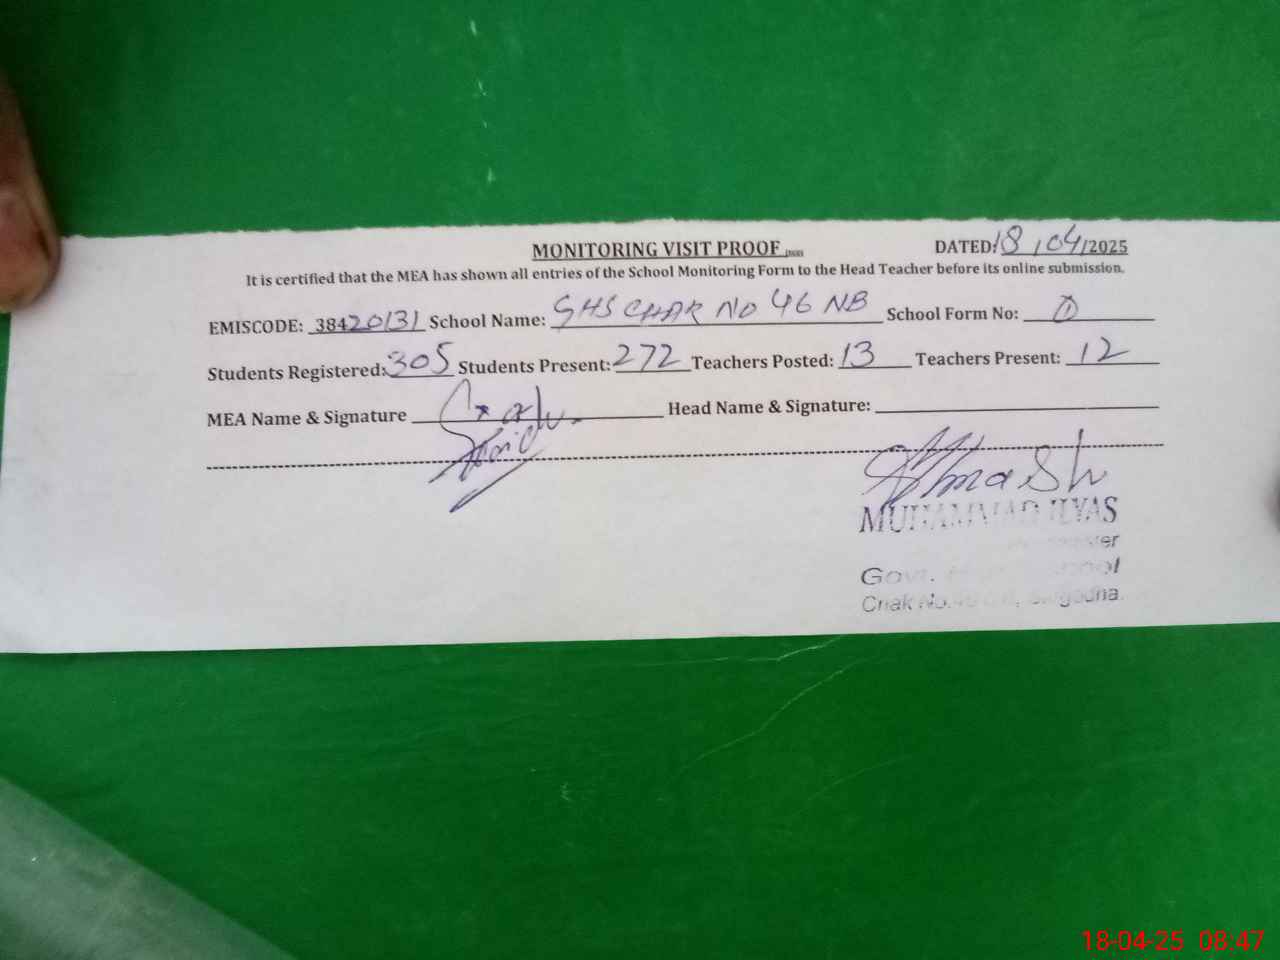 MONITORING VISIT PROOF DATED: 18/04/2025
It is certified that the MEA has shown all entries of the School Monitoring Form to the Head Teacher before its online submission.
EMISCODE: 38420131 School Name: GHS CHAK NO 46 NB School Form No: 1
Students Registered: 305 Students Present: 272 Teachers Posted: 13 Teachers Present: 12
MEA Name & Signature Head Name & Signature:
MUHAMMAD ILYAS
Govt. School
Chak No.
18-04-25 08:47